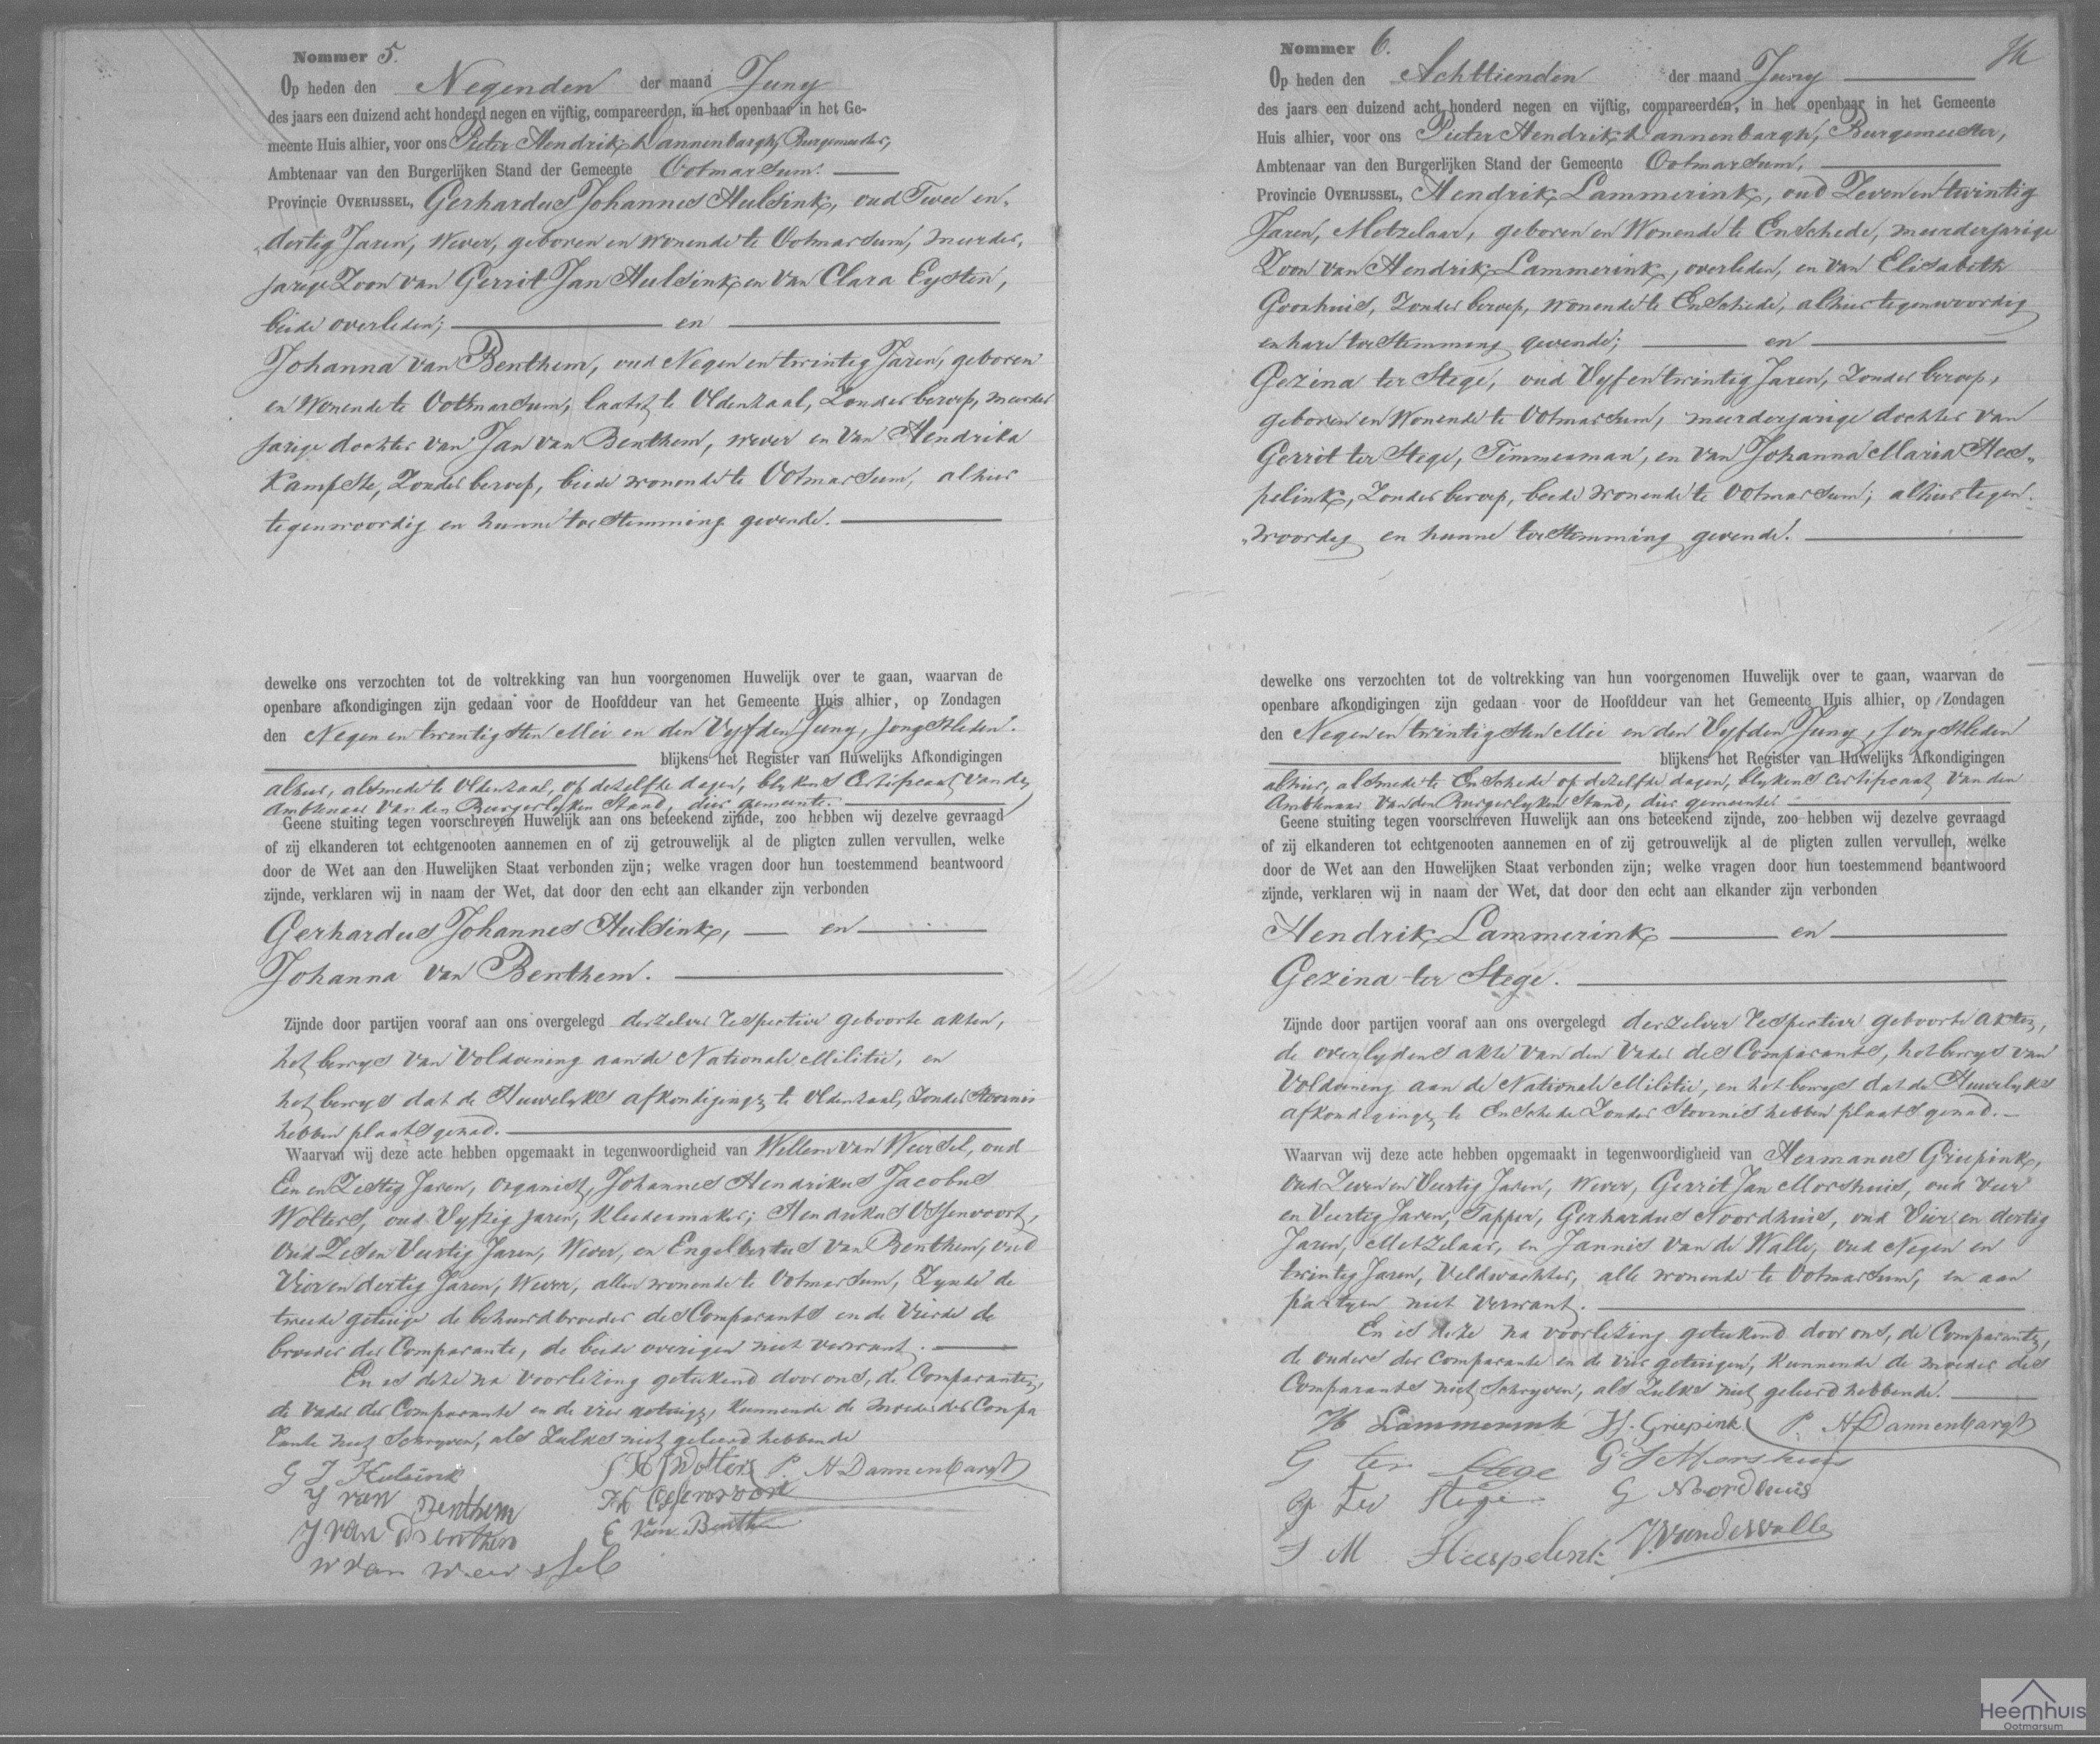 Nommer 5.
Op heden den Negenden der maand Juny
des jaars een duizend acht honderd negen en vijftig, compareerden, in het openbaar in het Ge-
meente Huis alhier, voor ons Pieter Hendrik Dannenbargh, Burgemeester,
Ambtenaar van den Burgerlijken Stand der Gemeente Ootmarsum.
Provincie OVERIJSSEL, Gerhardus Johannes Hulsink, oud Twee en
dertig Jaren, Wever, geboren en wonende te Ootmarsum, meerder,
jarige Zoon van Gerrit Jan Hulsink en van Clara Eysten,
beide overleden; en
Johanna van Benthem, oud Negen en twintig Jaren, geboren
en Wonende te Ootmarsum, laatst te Oldenzaal, Zonder beroep, meerder
jarige dochter van Jan van Benthem, wever en van Hendrika
Kampste, Zonder beroep, beide wonende te Ootmarsum, alhier
tegenwoordig en hunne toestemming gevende.
dewelke ons verzochten tot de voltrekking van hun voorgenomen Huwelijk over te gaan, waarvan de
openbare afkondigingen zijn gedaan voor de Hoofddeur van het Gemeente Huis alhier, op Zondagen
den Negen en twintigsten Mei en den Vyfden Juny, jongstleden.
blijkens het Register van Huwelijks Afkondigingen
alhier, alsmede te Oldenzaal, op dezelfde dagen, blykens Certificaat van den
Ambtenaar van den Burgerlyken Stand, dier gemeente.
Geene stuiting tegen voorschreven Huwelijk aan ons beteekend zijnde, zoo hebben wij dezelve gevraagd
of zij elkanderen tot echtgenooten aannemen en of zij getrouwelijk al de pligten zullen vervullen, welke
door de Wet aan den Huwelijken Staat verbonden zijn; welke vragen door hun toestemmend beantwoord
zijnde, verklaren wij in naam der Wet, dat door den echt aan elkander zijn verbonden
Gerhardus Johannes Hulsink, en
Johanna van Benthem.
Zijnde door partijen vooraf aan ons overgelegd derzelver respective geboorte akten,
het bewys van Voldoening aan de Nationale Militie, en
het bewys dat de Huwelyks afkondiging te Oldenzaal, Zonder Stoornis
hebben plaats gehad.
Waarvan wij deze acte hebben opgemaakt in tegenwoordigheid van Willem van Weersel, oud
Een en Zestig Jaren, Organist, Johannes Hendrikus Jacobus
Wolters, oud Vyftig jaren, Kleedermaker; Hendrikus Ossenvoort,
oud Zes en Veertig Jaren, Wever, en Engelbertus van Benthem, oud
Vier en dertig Jaren, Wever, allen wonende te Ootmarsum, Zynde de
tweede getuige de behuwdbroeder des Comparants en de Vierde de
broeder der Comparante, de beide overigen niet verwant.
En is deze na voorlezing geteekend door ons, de Comparanten,
de Vader der Comparante en de vier getuigen, Kunnende de moeder der Compa
rante niet Schryven, als Zulks niet geleerd hebbende
G J Hulsink
J H J Wolters P. H Dannenbargh
J van Benthem
H Ossenvoort
J van Benthem
E van Benthem
W van Weersel
Nommer 6.
Op heden den Achttienden der maand Juny
des jaars een duizend acht honderd negen en vijftig, compareerden, in het openbaar in het Gemeente
Huis alhier, voor ons Pieter Hendrik Dannenbargh, Burgemeester,
Ambtenaar van den Burgerlijken Stand der Gemeente Ootmarsum,
Provincie OVERIJSSEL, Hendrik Lammerink, oud Zeven en twintig
Jaren, Metzelaar, geboren en Wonende te Enschede, meerderjarige
Zoon van Hendrik Lammerink, overleden, en van Elisabeth
Goorhuis, Zonder beroep, wonende te Enschede, alhier tegenwoordig
en hare toestemming gevende; en
Gezina ter Stege, oud Vyf en twintig Jaren, Zonder beroep,
geboren en Wonende te Ootmarsum, meerderjarige dochter van
Gerrit ter Stege, Timmerman, en van Johanna Maria Hees,,
pelink, Zonder beroep, beide wonende te Ootmarsum; alhier tegen
,,woordig en hunne toestemming gevende.
dewelke ons verzochten tot de voltrekking van hun voorgenomen Huwelijk over te gaan, waarvan de
openbare afkondigingen zijn gedaan voor de Hoofddeur van het Gemeente Huis alhier, op Zondagen
den Negen en twintigsten Mei en den Vyfden Juny, jongstleden
blijkens het Register van Huwelijks Afkondigingen
alhier, alsmede te Enschede op dezelfde dagen, blykens certificaat van den
Ambtenaar van den Burgerlyken Stand, dier gemeente.
Geene stuiting tegen voorschreven Huwelijk aan ons beteekend zijnde, zoo hebben wij dezelve gevraagd
of zij elkanderen tot echtgenooten aannemen en of zij getrouwelijk al de pligten zullen vervullen, welke
door de Wet aan den Huwelijken Staat verbonden zijn; welke vragen door hun toestemmend beantwoord
zijnde, verklaren wij in naam der Wet, dat door den echt aan elkander zijn verbonden
Hendrik Lammerink en
Gezina ter Stege.
Zijnde door partijen vooraf aan ons overgelegd derzelver respective geboorte akten,
de overlydens akte van den Vader des Comparants, het bewys van
Voldoening aan de Nationale Militie, en het bewys dat de Huwelyks
afkondiging te Enschede Zonder Stoornis hebben plaats gehad.
Waarvan wij deze acte hebben opgemaakt in tegenwoordigheid van Hermanus Griepink,
oud Zeven en Veertig Jaren, Wever, Gerrit Jan Morshuis, oud vier
en Veertig Jaren, Tapper, Gerhardus Noordhuis, oud Vier en dertig
Jaren, Metzelaar, en Jannis van de Walle, oud Negen en
twintig Jaren, Veldwachter, alle wonende te Ootmarsum, en aan
partyen niet verwant.
En is deze na voorlezing geteekend door ons, de Comparanten,
de ouders der comparante en de vier getuigen, Kunnende de moeder des
Comparants niet Schryven, als Zulks niet geleerd hebbende.
H Lammerink H. Griepink P. H Dannenbargh
G ter Stege G J Morshuis
G ter Stege G Noordhuis
J M Heespelink J. van de Walle
Heemhuis
Ootmarsum